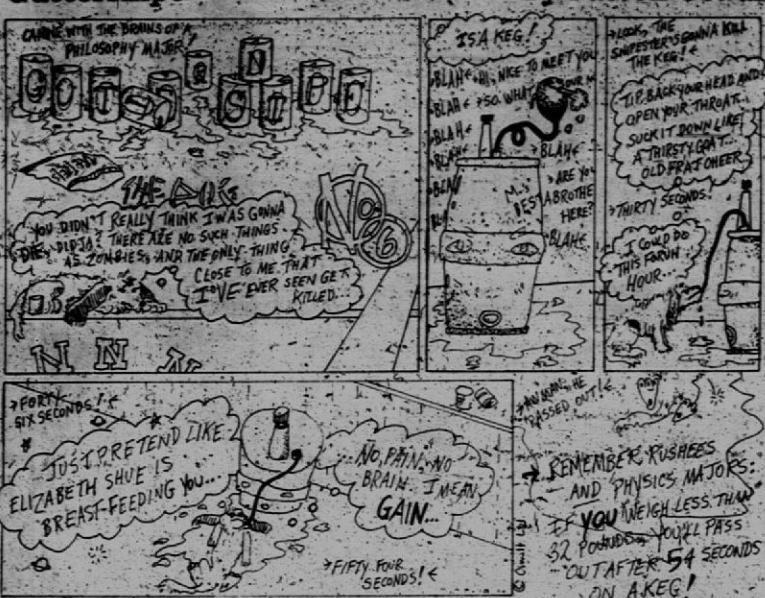 CANINE WITH THE BRAINS OF A
PHILOSOPHY MAJOR!
THE DOG
YOU DIDN'T REALLY THINK I WAS GONNA
DIE, DIDJA? THERE ARE NO SUCH THINGS
AS ZOMBIES, AND THE ONLY THING
CLOSE TO ME THAT
I'VE EVER SEEN GET
KILLED...
No 6
N N N
IS A KEG!
BLAH HI, NICE TO MEET YOU
BLAH SO, WHAT YOUR M
BLAH
BLAH
BLAH
BLAH
ARE YOU
A BROTHE
HERE?
BLAH
M.'S
BEST
LOOK, THE
SNIPESTER'S GONNA KILL
THE KEG!
TIP BACK YOUR HEAD AND
OPEN YOUR THROAT...
SUCK IT DOWN LIKE
A THIRSTY GOAT...
OLD FRAT CHEER
THIRTY SECONDS!
I COULD DO
THIS FOR AN
HOUR...
FORTY
SIX SECONDS!
JUST PRETEND LIKE
ELIZABETH SHUE IS
BREAST-FEEDING YOU...
NO PAIN, NO
BRAIN... I MEAN
GAIN...
FIFTY FOUR
SECONDS!
AW MAN, HE
PASSED OUT!
REMEMBER RUSHEES
AND PHYSICS MAJORS:
IF YOU WEIGH LESS THAN
32 POUNDS, YOU'LL PASS
OUT AFTER 54 SECONDS
ON A KEG!